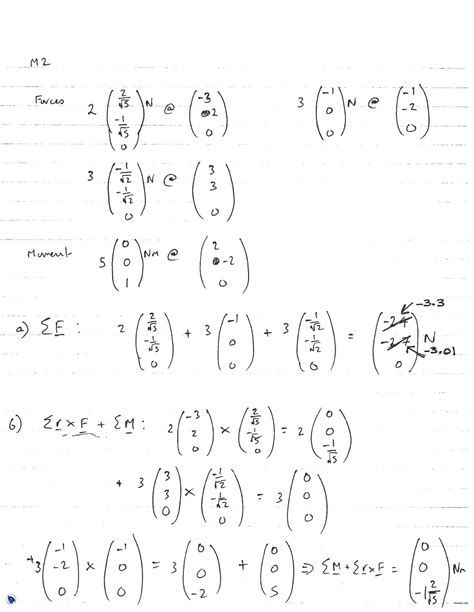 M2
Forces 2 (2/√5, -1/√5, 0) N @ (-3, 2, 0) 3 (-1, 0, 0) N @ (-1, -2, 0)
3 (-1/√2, -1/√2, 0) N @ (3, 3, 0)
Moment 5 (0, 0, 1) Nm @ (2, -2, 0)
a) ΣF : 2 (2/√5, -1/√5, 0) + 3 (-1, 0, 0) + 3 (-1/√2, -1/√2, 0) = ( , , 0) N -3.3 -3.01
b) Σr×F + ΣM : 2 (-3, 2, 0) × (2/√5, -1/√5, 0) = 2 (0, 0, -1/√5)
+ 3 (3, 3, 0) × (-1/√2, -1/√2, 0) = 3 (0, 0, 0)
+3 (-1, -2, 0) × (-1, 0, 0) = 3 (0, 0, -2) + (0, 0, 5) ⇒ ΣM + Σr×F = (0, 0, -1 2/√5) Nm